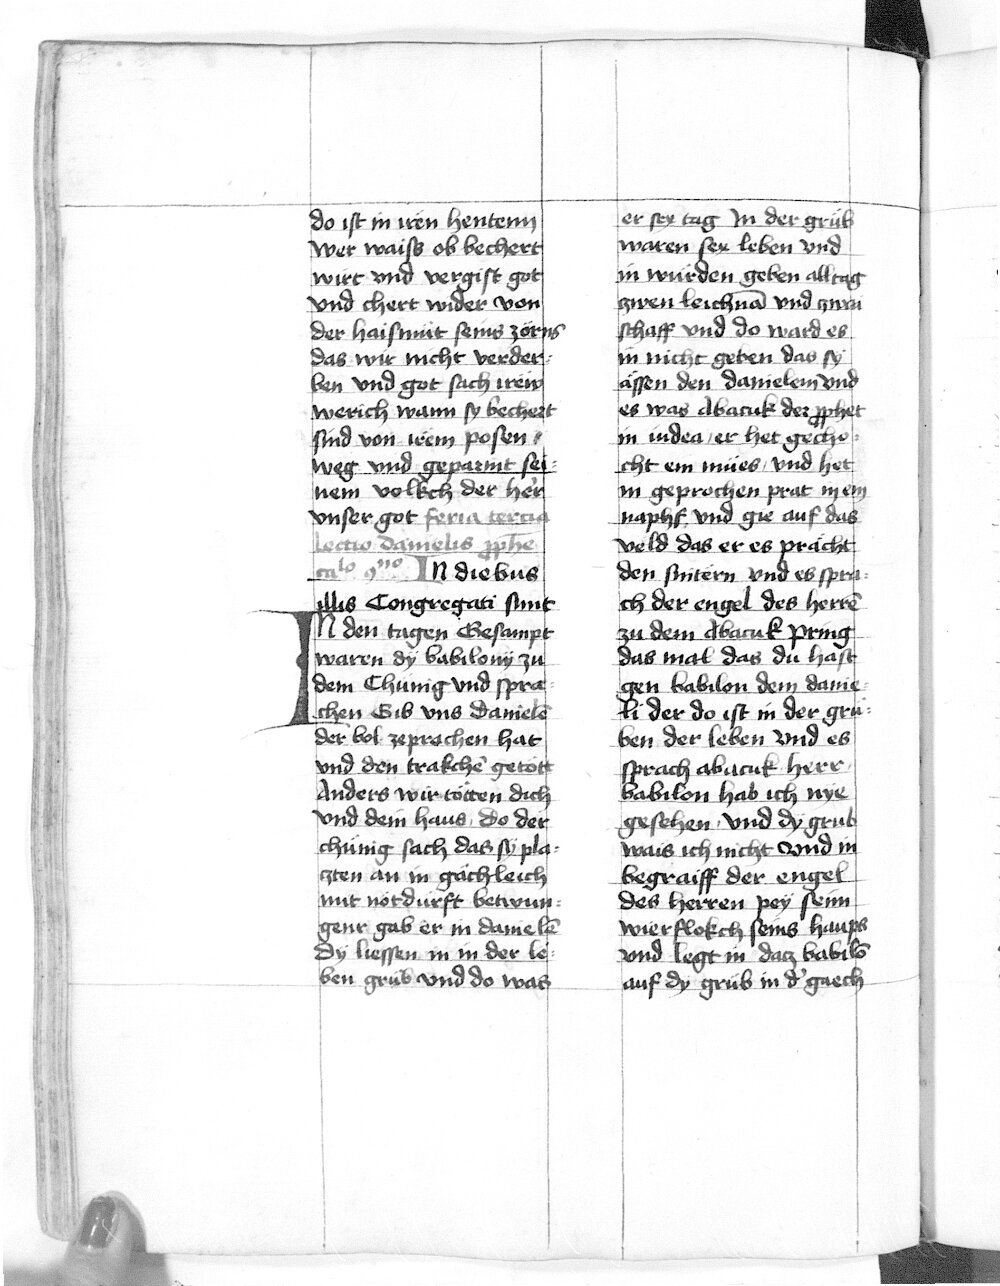 do ist in iren hentenn
wer waiss ob bechert
wirt vnd vergist got
vnd chert wider von
der haismüt seins zörns
das wir nicht verder:
ben vnd got sach irew
werich wann sy bechert
sind von irem posen
weg vnd geparmt sei:
nem volkch der her
vnser got feria tercia
lectio danielis pphe
calo 9no In diebus
illis Congregati sunt
IN den tagen Gesampt
waren dÿ babilonÿ zu
dem Chünig vnd spra:
chen Gib vns Danielē
der bol zeprochen hat
vnd den trakchē getött
Anders wir tötten dich
vnd dein haus, do der
chünig sach das sÿ pla:
czten an in gächleich
mit nötdürft betwun:
genr gab er in danielē
Dÿ liessen in in der le:
ben grüb vnd do was
er sex tag In der grüb
waren sex leben vnd
in wurden geben all tag
zwen leichnā vnd zwai
schaff vnd do ward es
in nicht geben das sÿ
ässen den danielem vnd
es was Abacuk der pphet
in iudea, er het gecho:
cht ein mües, vnd het
in geprochen prat in ein
naphf vnd gie auf das
veld das er es prächt
den snitern vnd es spra:
ch der engel des herrē
zu dem Abacuk pring
das mal das du hast
gen babilon dem danie:
li der do ist in der grü:
ben der leben vnd es
sprach abacuk herr
babilon hab ich nÿe
gesehen, vnd dÿ grub
wais ich nicht vnd in
begraiff der engel
des herren peÿ seim
wierflokch seins haups
vnd legt in datz babilō
auf dÿ grüb in d' gaech